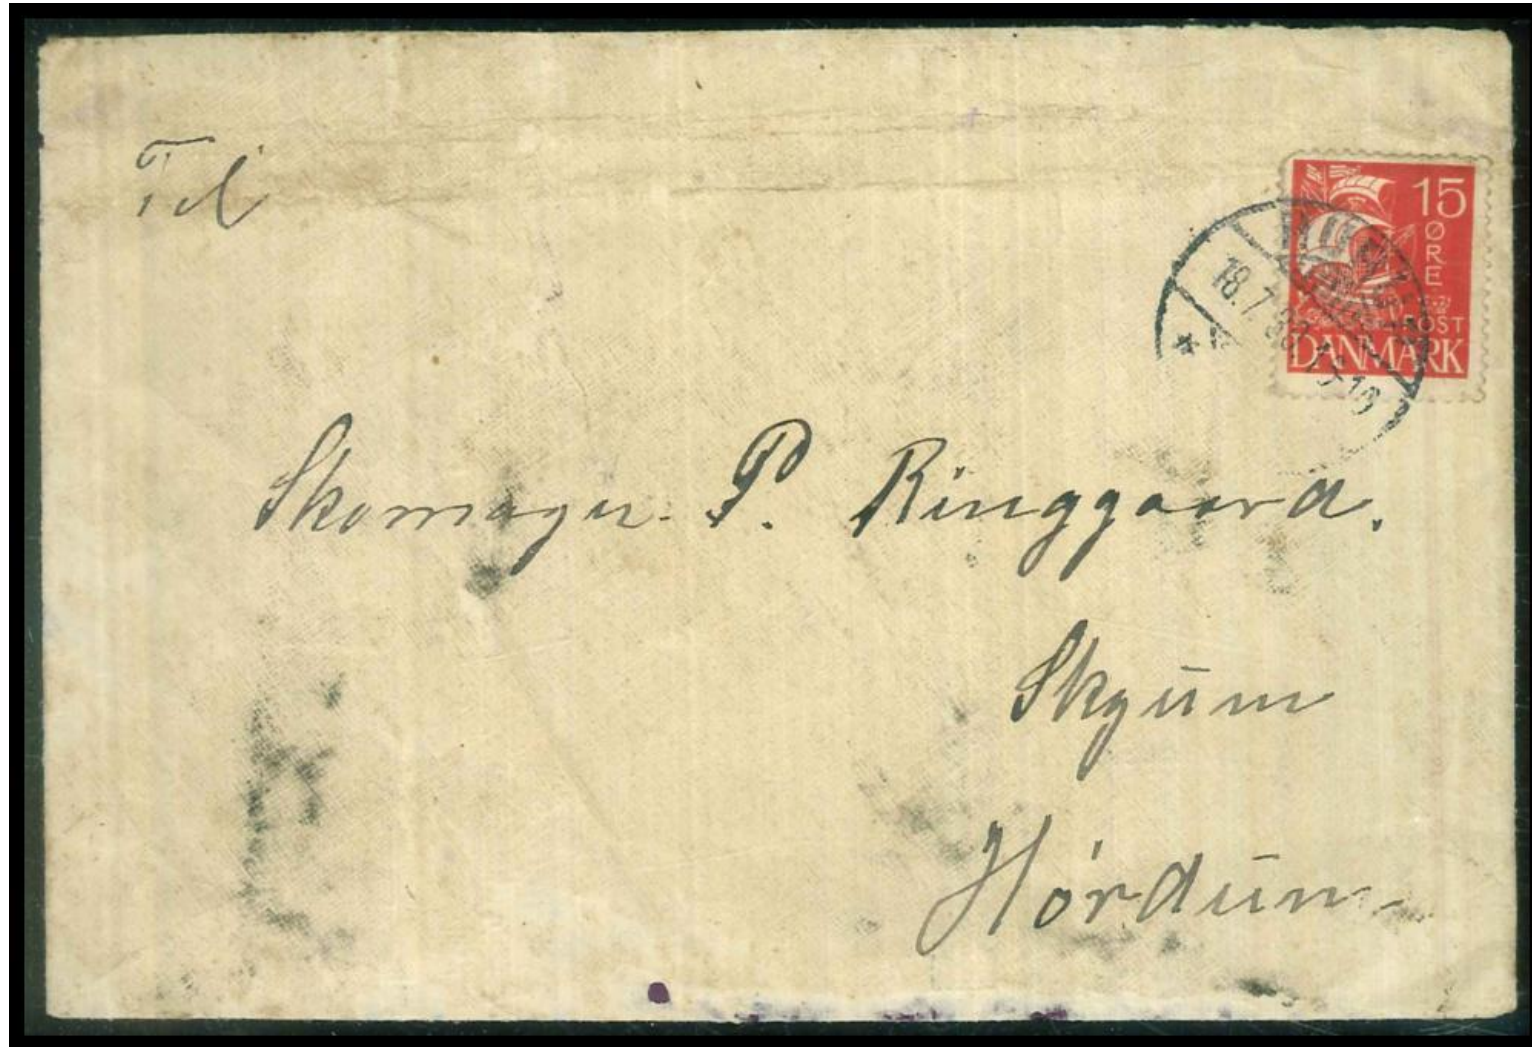 Til
15
ØRE
POST
DANMARK
18.7.
Skomager P. Ringgaard.
Skyum
Hørdum